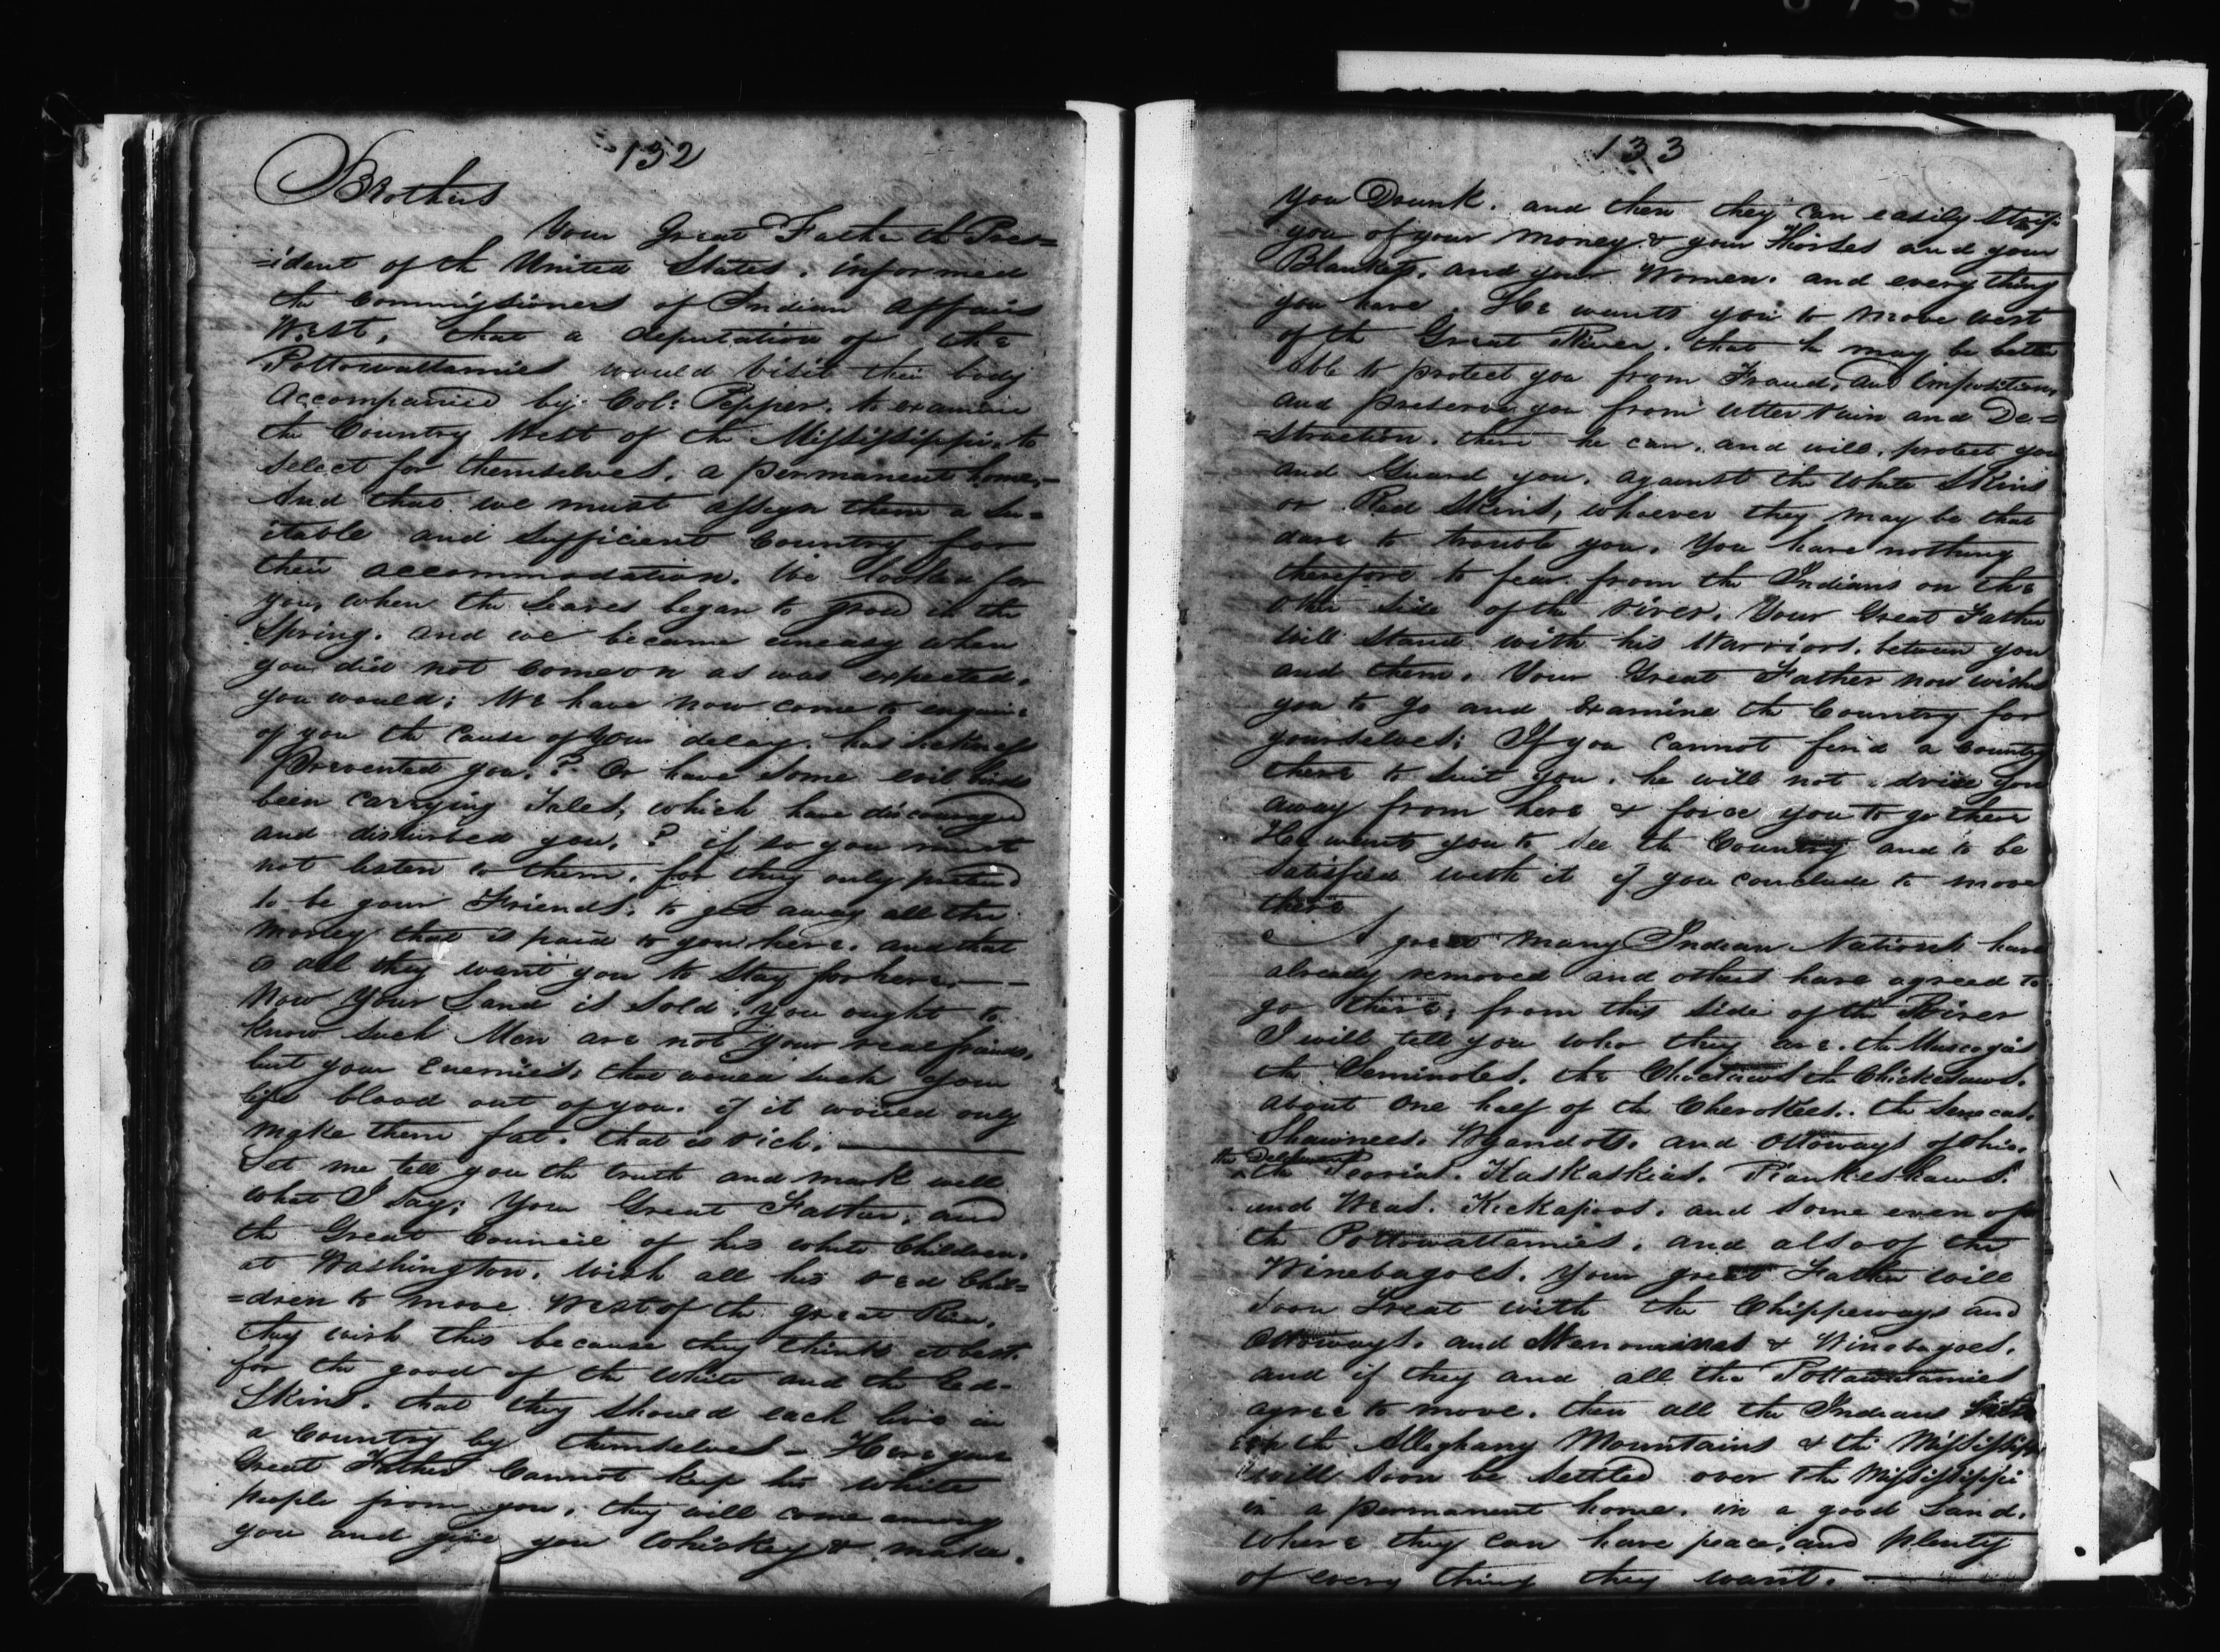 132
Brothers
Your Great Father the Pres=
=ident of the United States, informed
the Commissioners of Indian Affairs
West, that a deputation of the
Pottowattamies would visit their body
accompanied by Col: Pepper, to examine
the Country West of the Mississippi, to
select for themselves, a permanent home,-
And that we must assign them a su=
itable and sufficient Country for
their accommodation. We looked for
you, when the leaves began to grow in the
Spring. and we became uneasy when
you did not come on as was expected,
you would; We have now come to enquire
of you the cause of your delay. has sickness
prevented you,? Or have some evil birds
been carrying Tales, which have discouraged
and disturbed you,? if so you must
not listen to them, for they only pretend
to be your Friends, to get away all the
Money that is paid to you here. and that
is all they want you to stay for here,--
Now Your Land is sold, you ought to
know such Men are not your real friends,
but your Enemies, that would suck your
life blood out of you, if it would only
make them fat. that is rich.
Let me tell you the truth and mark well
what I say; Your Great Father, and
the Great Council of his white Children,
at Washington, wish all his red Chil=
=dren to move West of the great River,
they wish this because they think it best.
for the good of the white and the Red-
Skins, that they should each live in
a Country by themselves - Here your
Great Father Cannot keep his white
people from you, they will come among
you and give you Whiskey & make
133
you Drunk. and then they can easily strip
you of your money & your Horses and your
Blankets, and your Women. and every thing
you have. He wants you to move west
of the Great River. that he may be better
able to protect you from Fraud, and imposition,
and preserve you from utter ruin and De=
=struction. there he can, and will, protect you
and Guard you, against the White Skins
or Red Skins, whoever they may be that
dare to trouble you. You have nothing
therefore to fear from the Indians on the
other side of the river. Your Great Father
will stand with his Warriors, between you
and them. Your Great Father now wishes
you to go and examine the Country for
yourselves; If you cannot find a Country
there to suit you, he will not drive you
away from here & force you to go there
He wants you to see the Country and to be
satisfied with it if you conclude to move
there
A great many Indian Nations have
already removed and others have agreed to
go there, from this side of the River
I will tell you who they are. the Muscogees
the Seminoles, the Choctaws the Chickesaws.
about one half of the Cherokees. the Senecas,
Shawnees. Wyandots. and Ottoways of Ohio.
the Delawares
the Peorias. Kaskaskias. Piankeshaws.
and Weas. Kickapoos, and some even of
the Pottowattamies, and also of the
Winebagoes. Your great Father will
soon Treat with the Chippeways and
Ottoways, and Menominees & Winebagoes,
and if they and all the Pottawatamies
agree to move, then all the Indians
the Alleghany Mountains & the Mississippi
will soon be settled over the Mississippi
in a permanent home, in a good Land.
Where they can have peace, and plenty
of every thing they want.